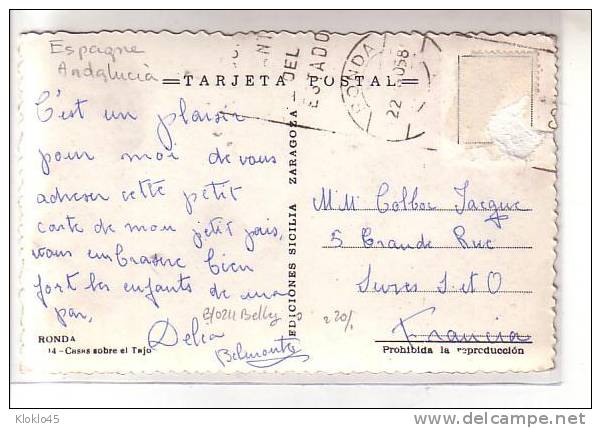 Espagne
Andalucia
=TARJETA POSTAL=
DEL
ESTADO
RONDA
22
C'est un plaisir
pour moi de vous
adresser cette petit
carte de mon petit pais,
vous embrasse bien
fort les enfants de ma
par,
Delia
Belmonte
EDICIONES SICILIA ZARAGOZA
M.M Colboc Jacque
5 Grande Rue
Sevres S. et O
Francia
RONDA
14 - Casas sobre el Tajo
Prohibida la reproducción
Kloklo45
delcampe.net